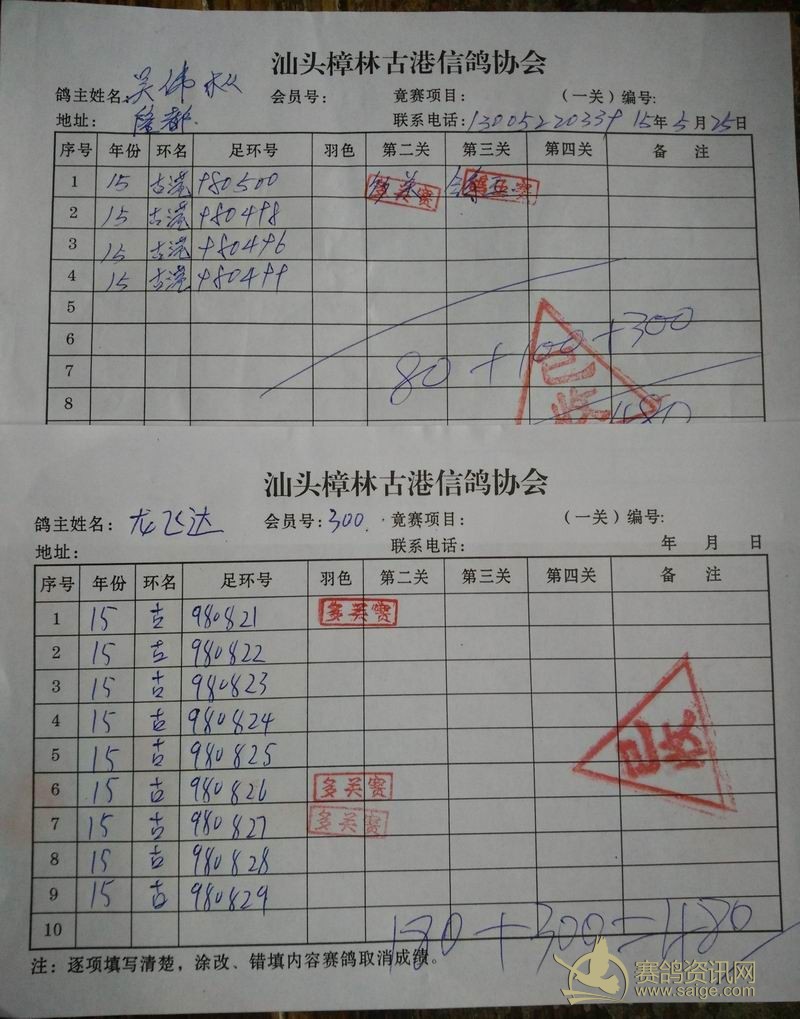 汕头樟林古港信鸽协会
鸽主姓名: 吴伟 会员号: 竟赛项目: (一关)编号:
地址: 隆都. 联系电话: 13005220339 15年5月25日
序号 年份 环名 足环号 羽色 第二关 第三关 第四关 备 注
1 15 古港 980500 多关赛
2 15 古港 980498
3 15 古港 980496
4 15 古港 980499
5
6
7
8
80+100+300
已收
480
汕头樟林古港信鸽协会
鸽主姓名: 龙飞达 会员号: 300. 竟赛项目: (一关)编号:
地址: 联系电话: 年 月 日
序号 年份 环名 足环号 羽色 第二关 第三关 第四关 备 注
1 15 古 980821 多关赛
2 15 古 980822
3 15 古 980823
4 15 古 980824
5 15 古 980825
已收
6 15 古 980826 多关赛
7 15 古 980827 多关赛
8 15 古 980828
9 15 古 980829
10
180+300=480
注：逐项填写清楚，涂改、错填内容赛鸽取消成绩。
赛鸽资讯网
www.saige.com